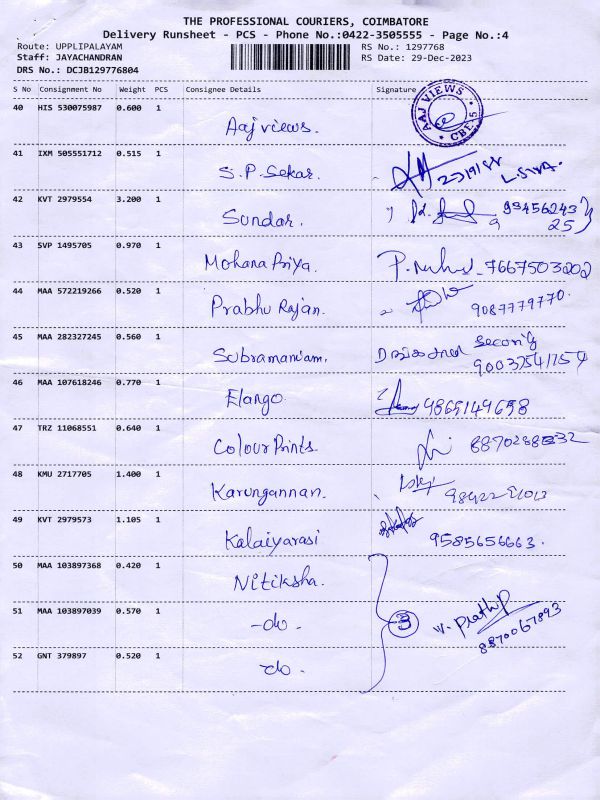 THE PROFESSIONAL COURIERS, COIMBATORE
Delivery Runsheet - PCS - Phone No.:0422-3505555 - Page No.:4
Route: UPPLIPALAYAM RS No.: 1297768
Staff: JAYACHANDRAN RS Date: 29-Dec-2023
DRS No.: DCJB129776804
S No Consignment No Weight PCS Consignee Details Signature
40 HIS 530075987 0.600 1 Aaj views. AAJ VIEWS CBE-15
41 IXM 505551712 0.515 1 S.P.Sekar.
42 KVT 2979554 3.200 1 Sundar. 9345624325
43 SVP 1495705 0.970 1 Mohana Priya. 7667503202
44 MAA 572219266 0.520 1 Prabhu Rajan. 9087779770.
45 MAA 282327245 0.560 1 Subramaniam. Security
46 MAA 107618246 0.770 1 Elango 9865149658
47 TRZ 11068551 0.640 1 Colour Prints.
48 KMU 2717705 1.400 1 Karungannan.
49 KVT 2979573 1.105 1 Kalaiyarasi 9585656663.
50 MAA 103897368 0.420 1 Nitiksha.
51 MAA 103897039 0.570 1 -do- 3 V. Prathip
8870067893
52 GNT 379897 0.520 1 do -